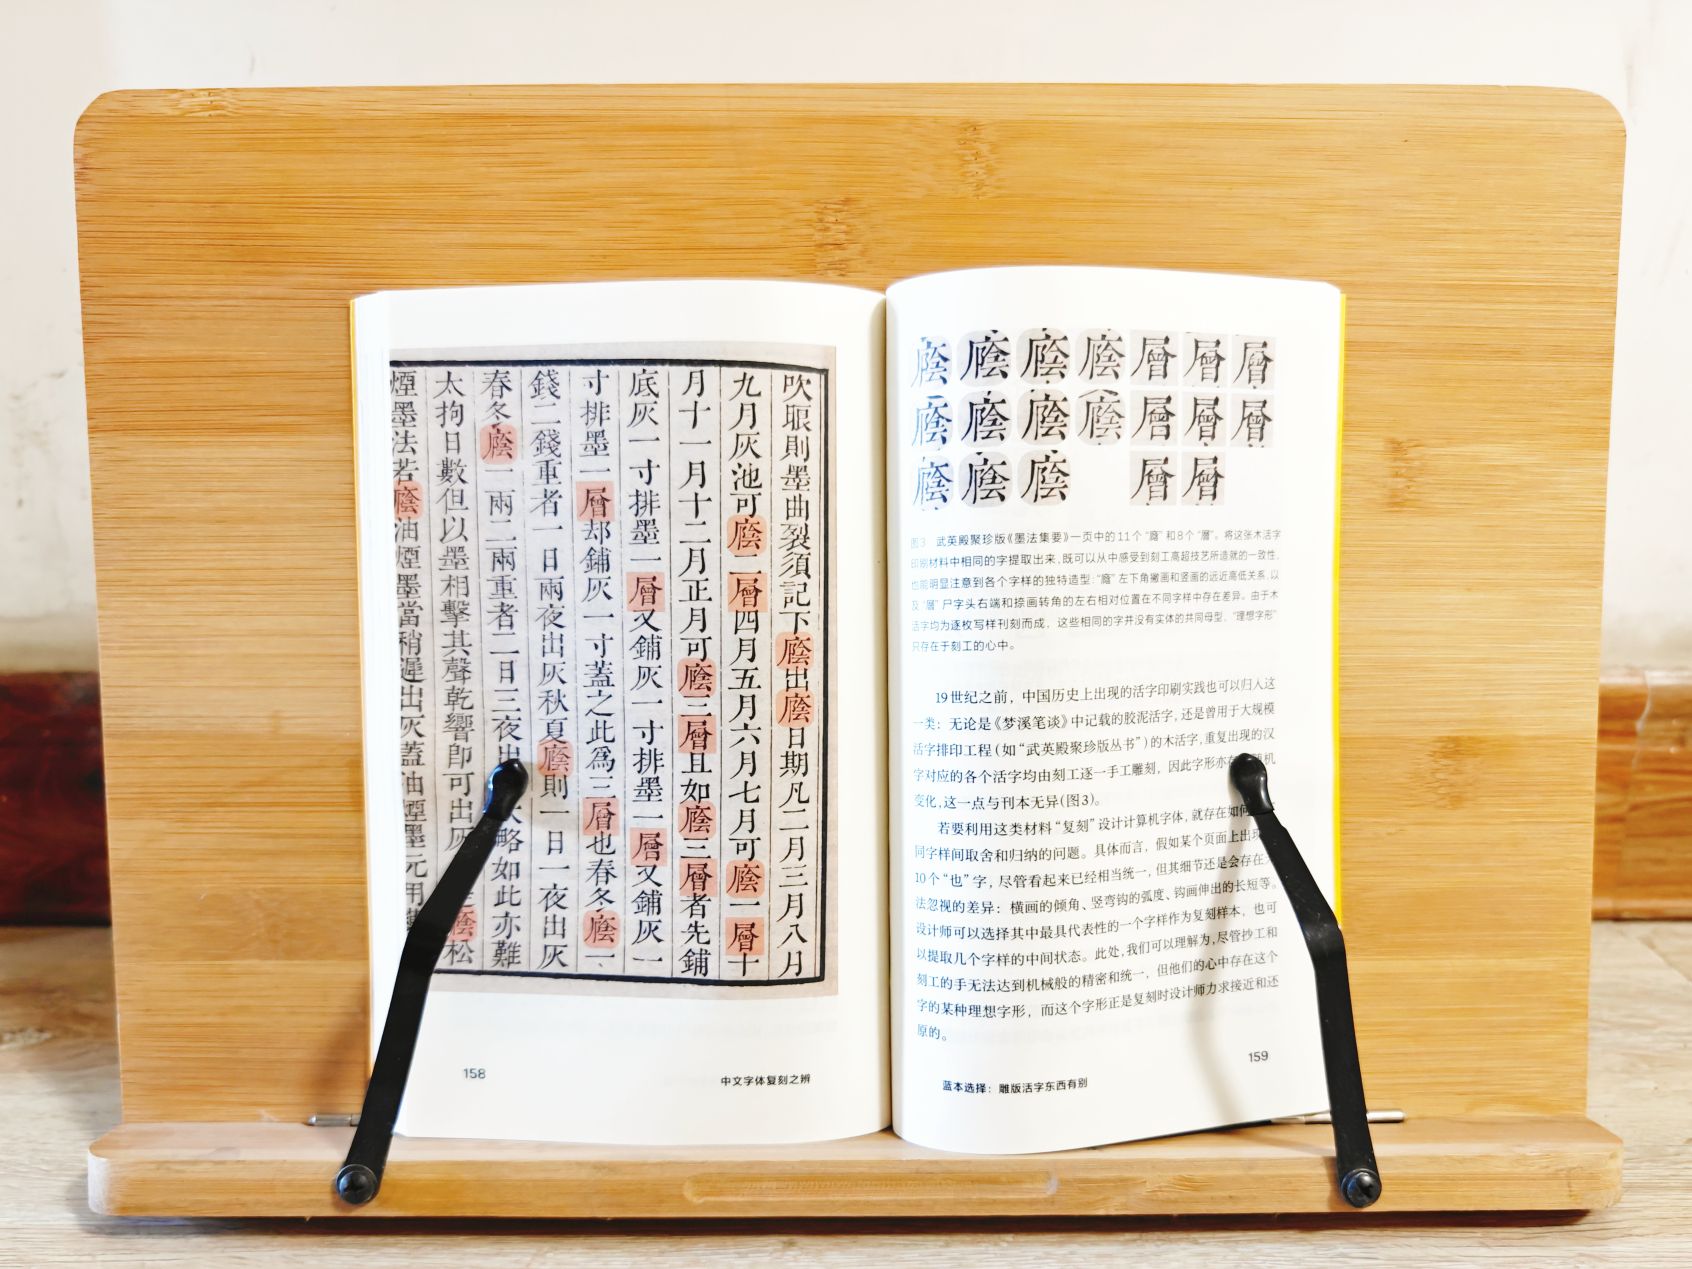 吹則墨曲裂須記下廕出廕日期凡二月三月八月
九月灰池可廕二層四月五月六月七月可廕一層十
月十一月十二月正月可廕三層且如廕三層者先鋪
底灰一寸排墨一層又鋪灰一寸排墨一層又鋪灰一
寸排墨一層却鋪灰一寸蓋之此爲三層也春冬廕一
錢二錢重者一日兩夜出灰秋夏廕則一日一夜出灰
春冬廕一兩二兩重者二日三夜出略如此亦難
太拘日數但以墨相擊其聲乾響卽可出灰廕松
煙墨法若廕油煙墨當稍遲出灰蓋油煙墨元用
158
中文字体复刻之辨
廕廕廕廕層層層
廕廕廕廕層層層
廕廕廕層層
图3 武英殿聚珍版《墨法集要》一页中的11个“廕”和8个“層”。将这张木活字
印刷材料中相同的字提取出来，既可以从中感受到刻工高超技艺所造就的一致性，
也能明显注意到各个字样的独特造型：“廕”左下角撇画和竖画的远近高低关系，以
及“層”尸字头右端和捺画转角的左右相对位置在不同字样中存在差异。由于木
活字均为逐枚写样刊刻而成，这些相同的字并没有实体的共同母型，“理想字形”
只存在于刻工的心中。
19世纪之前，中国历史上出现的活字印刷实践也可以归入这
一类：无论是《梦溪笔谈》中记载的胶泥活字，还是曾用于大规模
活字排印工程（如“武英殿聚珍版丛书”）的木活字，重复出现的汉
字对应的各个活字均由刻工逐一手工雕刻，因此字形亦在机
变化，这一点与刊本无异（图3）。
若要利用这类材料“复刻”设计计算机字体，就存在如何
同字样间取舍和归纳的问题。具体而言，假如某个页面上出现
10个“也”字，尽管看起来已经相当统一，但其细节还是会存在
法忽视的差异：横画的倾角、竖弯钩的弧度、钩画伸出的长短等。
设计师可以选择其中最具代表性的一个字样作为复刻样本，也可
以提取几个字样的中间状态。此处，我们可以理解为，尽管抄工和
刻工的手无法达到机械般的精密和统一，但他们的心中存在这个
字的某种理想字形，而这个字形正是复刻时设计师力求接近和还
原的。
159
蓝本选择：雕版活字东西有别